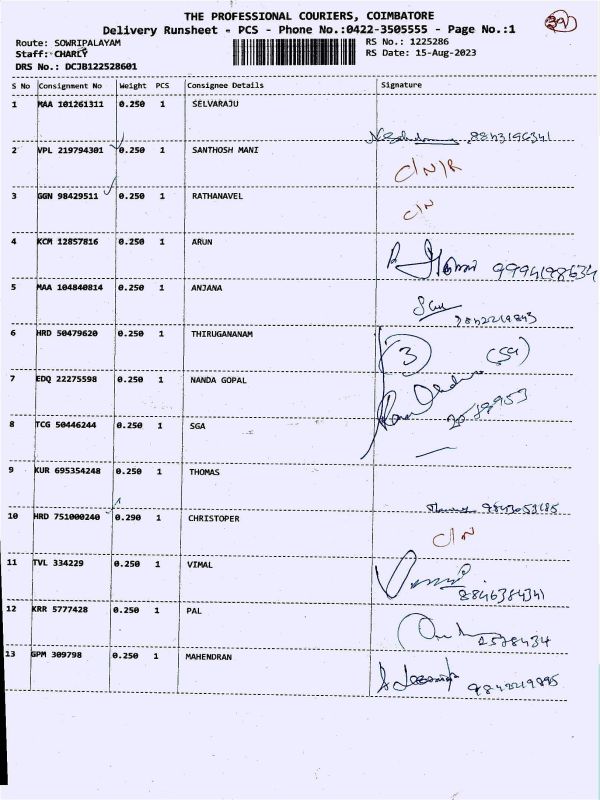 THE PROFESSIONAL COURIERS, COIMBATORE
Delivery Runsheet - PCS - Phone No.:0422-3505555 - Page No.:1
39
Route: SOWRIPALAYAM
RS No.: 1225286
Staff: CHARLY
RS Date: 15-Aug-2023
DRS No.: DCJB122528601
S No Consignment No Weight PCS Consignee Details Signature
1 MAA 101261311 0.250 1 SELVARAJU
8843196341
2 VPL 219794301 0.250 1 SANTHOSH MANI C/N/R
3 GGN 98429511 0.250 1 RATHANAVEL C/N
4 KCM 12857816 0.250 1 ARUN
9994198634
5 MAA 104840814 0.250 1 ANJANA
6 HRD 50479620 0.250 1 THIRUGANANAM 3 (59)
7 EDQ 22275598 0.250 1 NANDA GOPAL
8 TCG 50446244 0.250 1 SGA
9 KUR 695354248 0.250 1 THOMAS
10 HRD 751000240 0.290 1 CHRISTOPER C/N
11 TVL 334229 0.250 1 VIMAL
8846384341
12 KRR 5777428 0.250 1 PAL
2578434
13 GPM 309798 0.250 1 MAHENDRAN